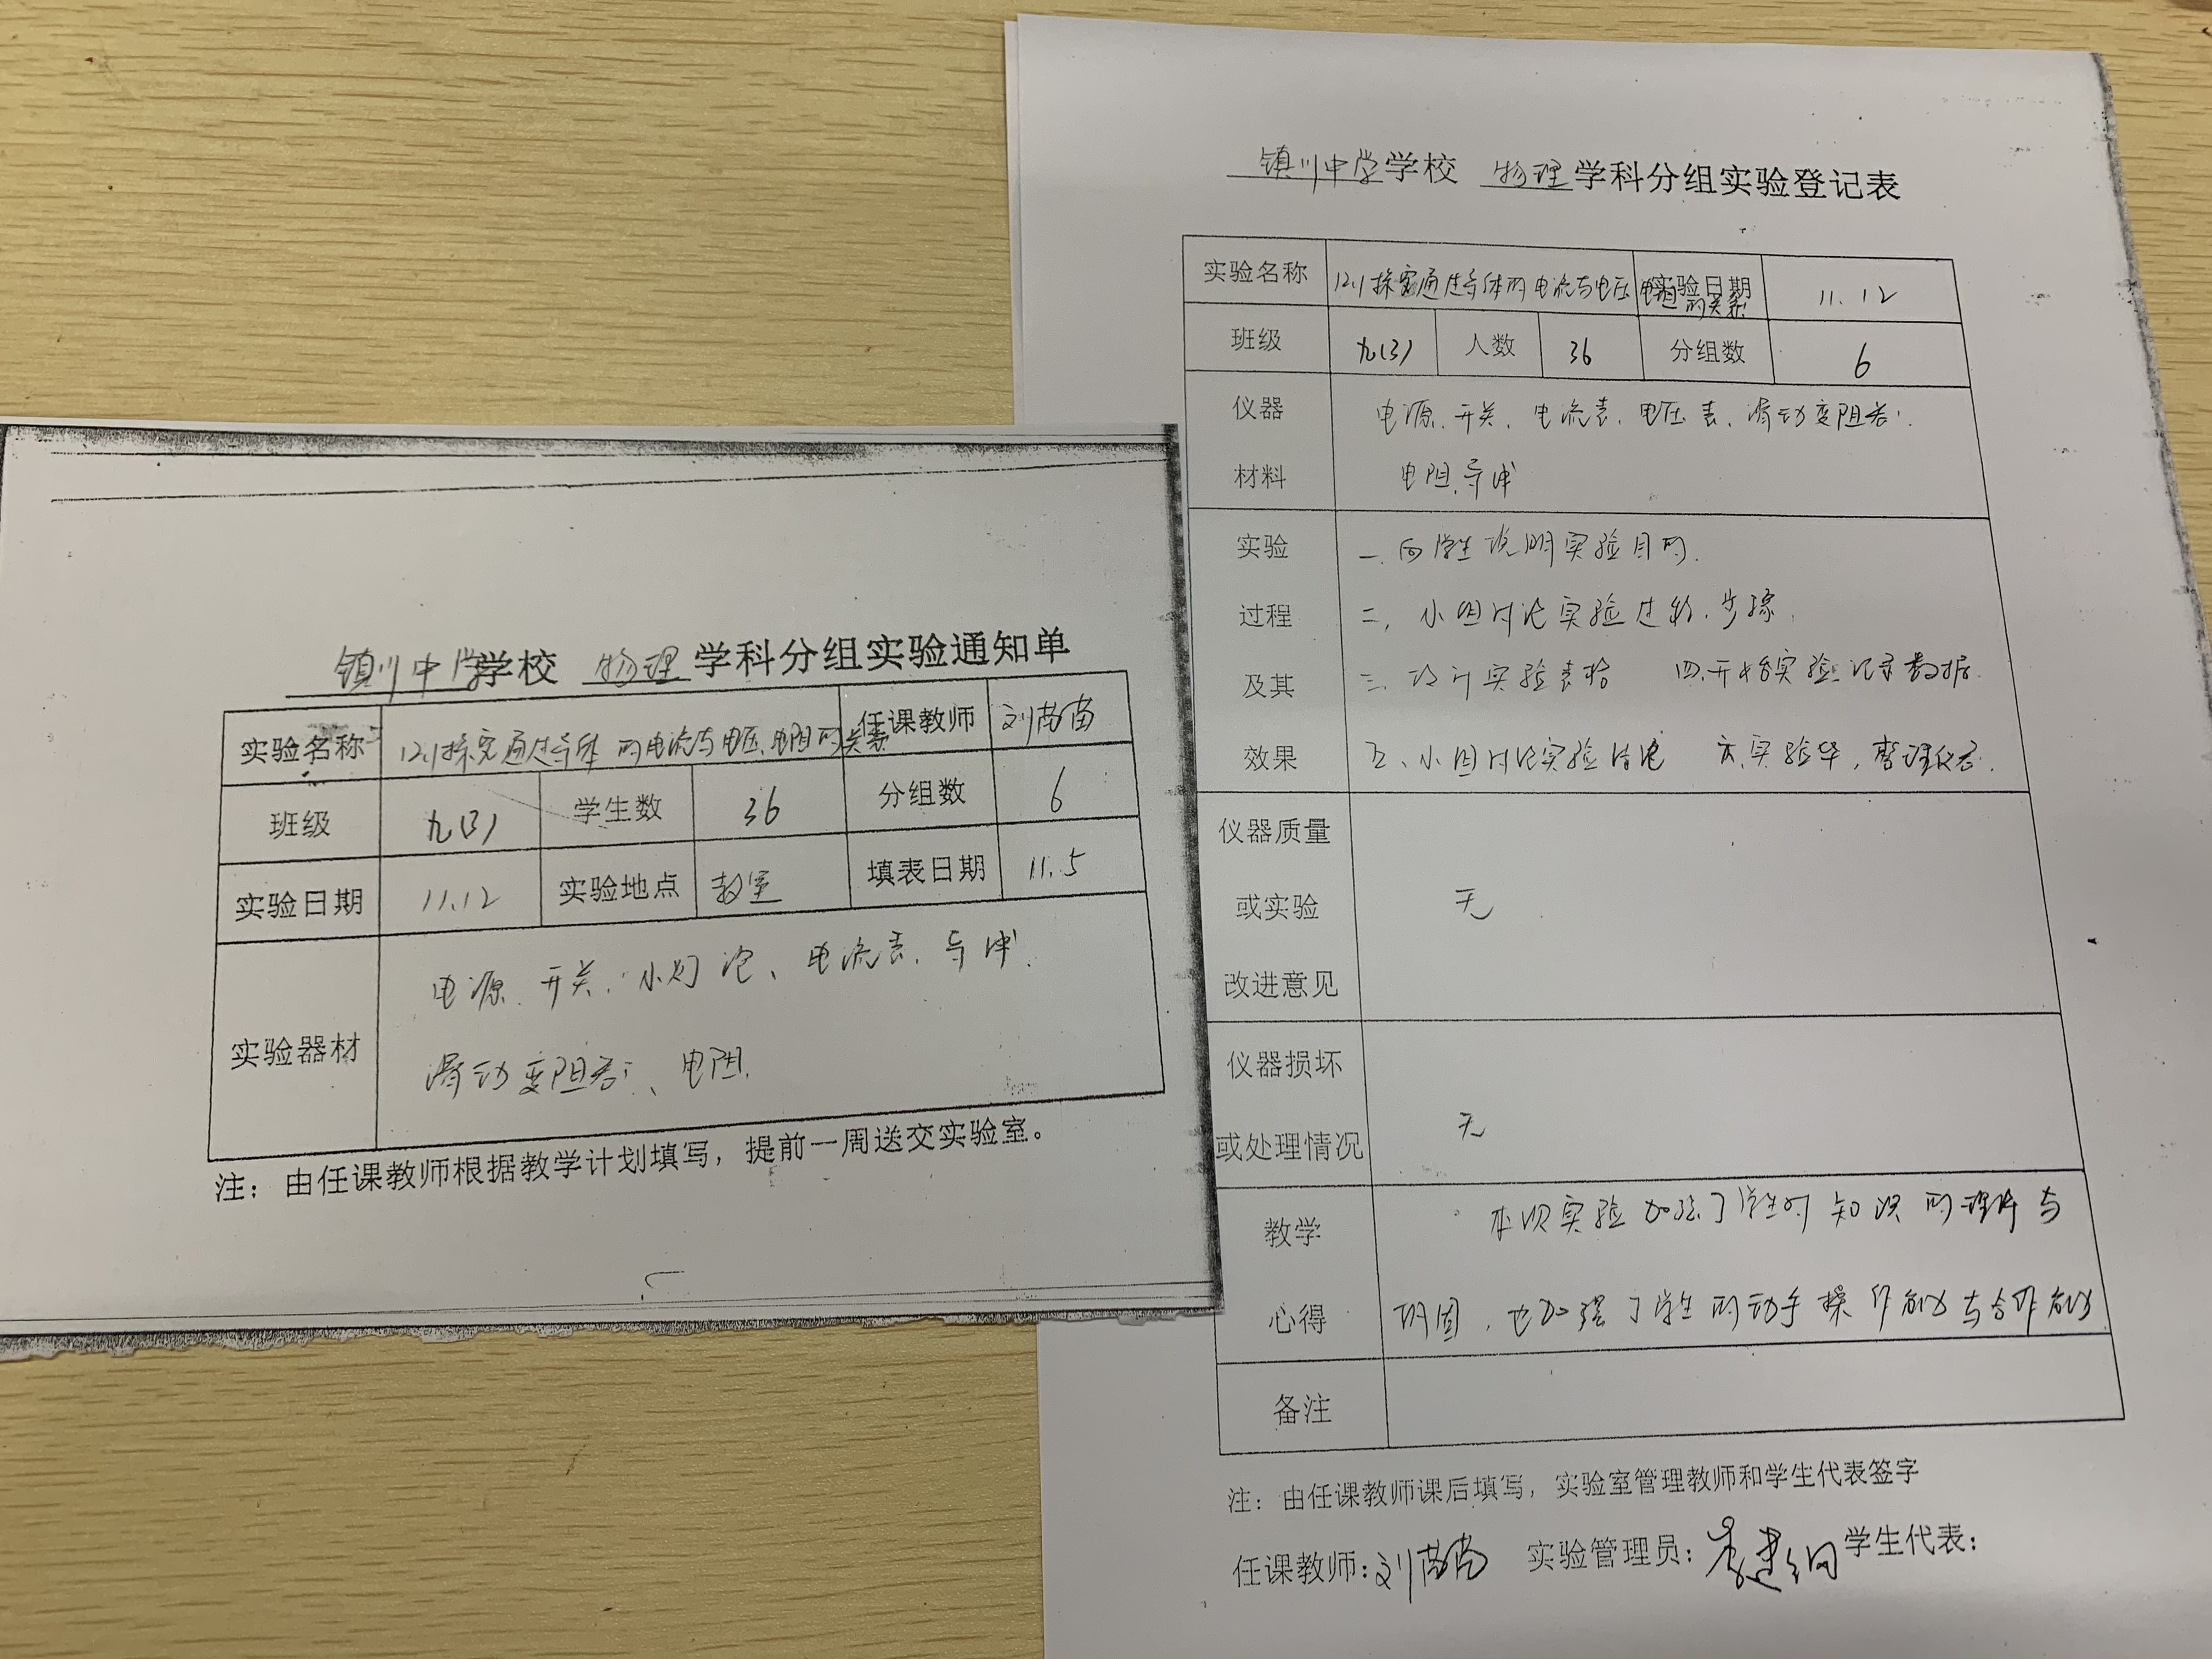 镇川中学学校 物理 学科分组实验通知单
实验名称 12.1探究通过导体的电流与电压、电阻的关系 任课教师 刘苗苗
班级 九(3) 学生数 36 分组数 6
实验日期 11.12 实验地点 教室 填表日期 11.5
实验器材 电源、开关、小灯泡、电流表、导线、
滑动变阻器、电阻.
注：由任课教师根据教学计划填写，提前一周送交实验室。
镇川中学学校 物理 学科分组实验登记表
实验名称 12.1探究通过导体的电流与电压 电阻的关系 实验日期 11.12
班级 九(3) 人数 36 分组数 6
仪器 电源、开关、电流表、电压表、滑动变阻器、
材料 电阻、导线
实验 一、向学生说明实验目的.
过程 二、小组讨论实验过程、步骤.
及其 三、设计实验表格 四、开始实验、记录数据.
效果 五、小组讨论实验结论 六、实验毕，整理仪器.
仪器质量
或实验 无
改进意见
仪器损坏
或处理情况 无
教学 本次实验加强了学生对知识的理解与
心得 巩固，也加强了学生的动手操作能力与合作能力
备注
注：由任课教师课后填写，实验室管理教师和学生代表签字
任课教师：刘苗苗 实验管理员： 学生代表：